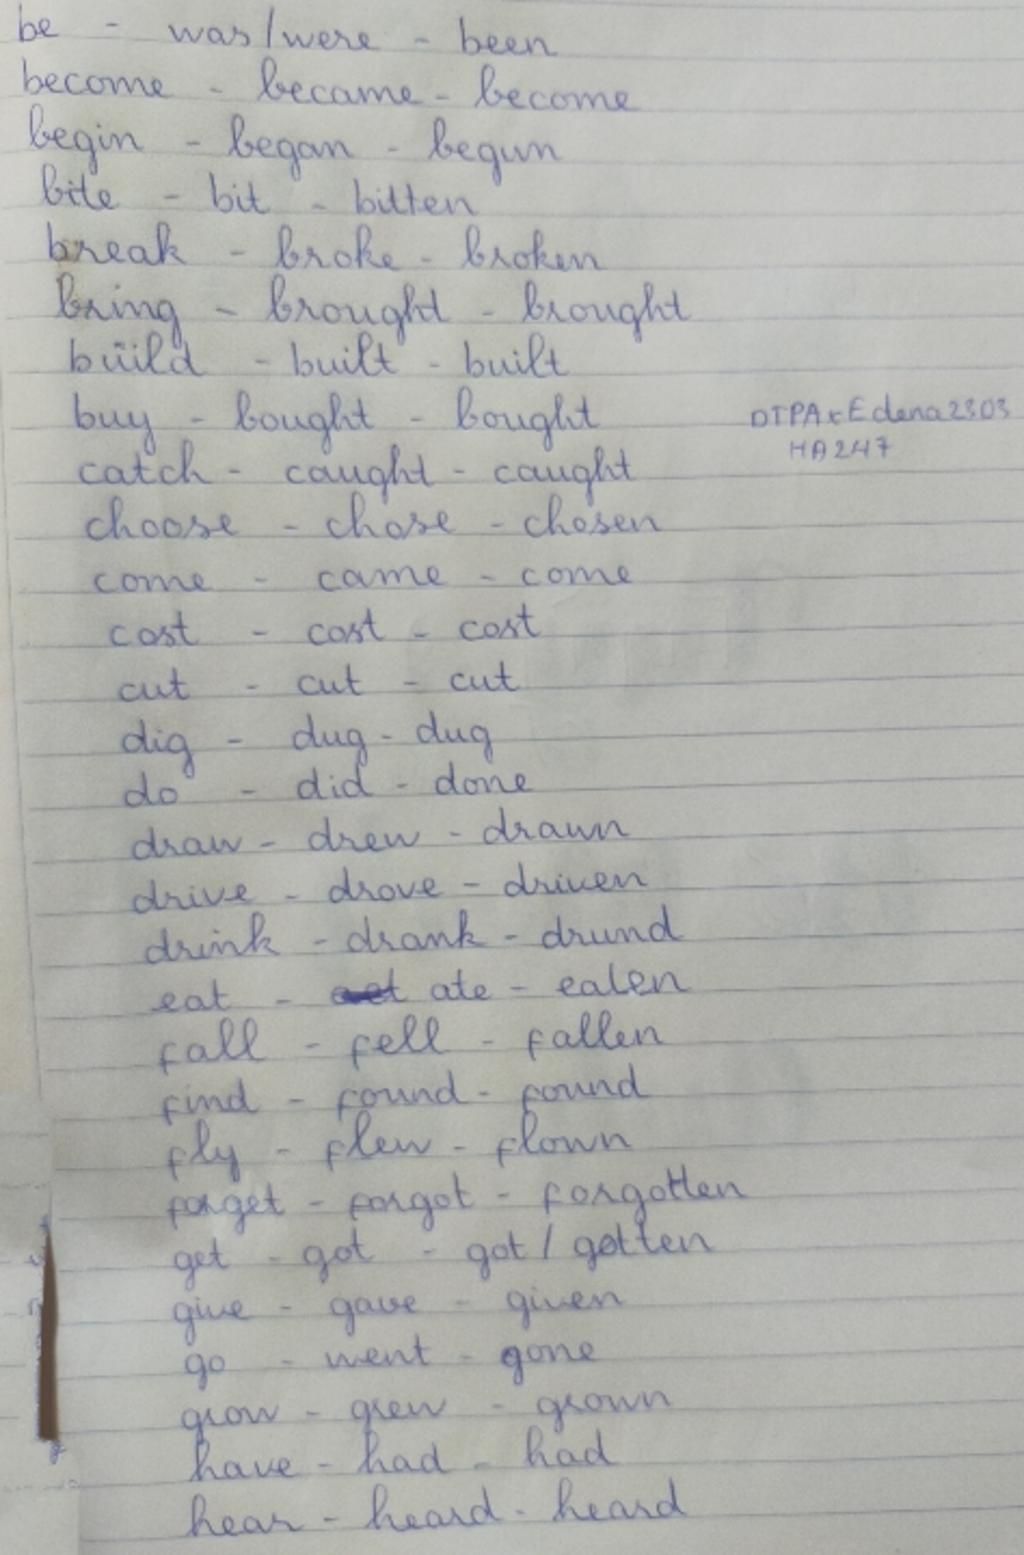 be - was/were - been
become - became - become
begin - began - begun
bite - bit - bitten
break - broke - broken
bring - brought - brought
build - built - built
buy - bought - bought
DTPAxEdena2303
HA247
catch - caught - caught
choose - chose - chosen
come - came - come
cost - cost - cost
cut - cut - cut
dig - dug - dug
do - did - done
draw - drew - drawn
drive - drove - driven
drink - drank - drund
eat - ate - eaten
fall - fell - fallen
find - found - found
fly - flew - flown
forget - forgot - forgotten
get - got - got / gotten
give - gave - given
go - went - gone
grow - grew - grown
have - had - had
hear - heard - heard